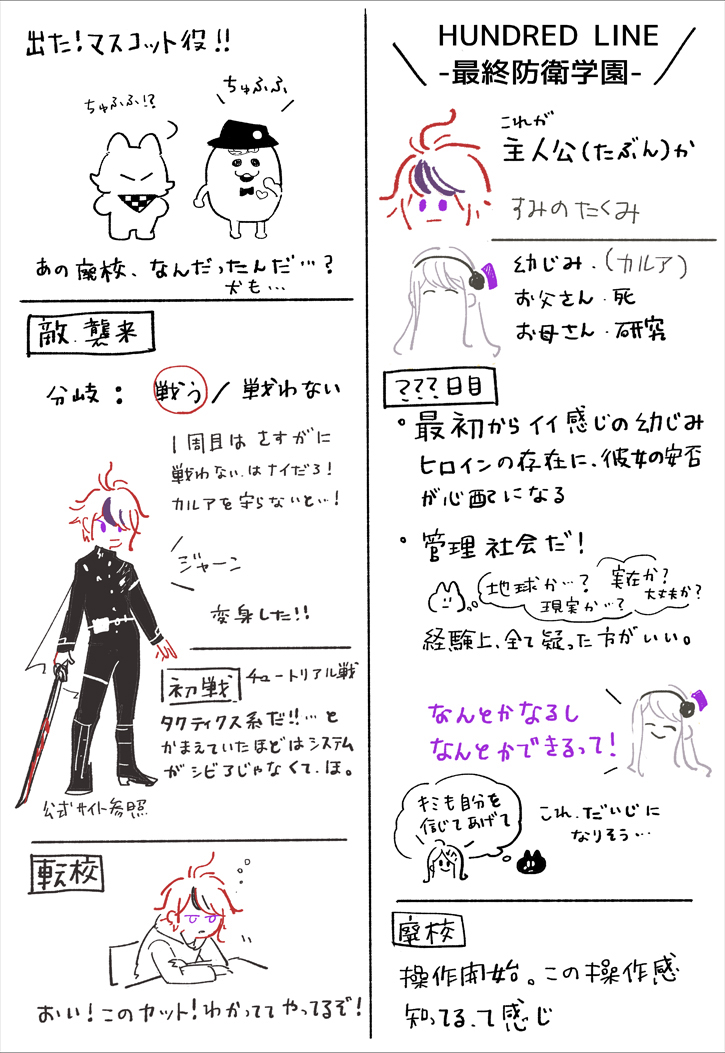 HUNDRED LINE
-最終防衛学園-
これが
主人公(たぶん)か
すみの たくみ
幼じみ・(カルア)
お父さん・死
お母さん・研究
???日目
・最初からイイ感じの幼じみ
ヒロインの存在に、彼女の安否
が心配になる
・管理社会だ!
地球か…?
現実か…?
実在か?
大丈夫か?
経験上、全て疑った方がいい。
なんとかなるし
なんとかできるって!
キミも自分を
信じてあげて
これ、だいじに
なりそう…
廃校
操作開始。この操作感
知ってる、て感じ
出た!マスコット役!!
ちゅふふ!?
ちゅふふ
あの廃校、なんだったんだ…?
犬も…
敵.襲来
分岐: 戦う/戦わない
1周目は さすがに
戦わない、はナイだろ!
カルアを守らないと…!
ジャーン
変身した!!
初戦 チュートリアル戦
タクティクス系だ!!…と
かまえていたほどはシステム
がシビアじゃなくて、ほ。
公式サイト参照
転校
おい!このカット!わかっててやってるぞ!